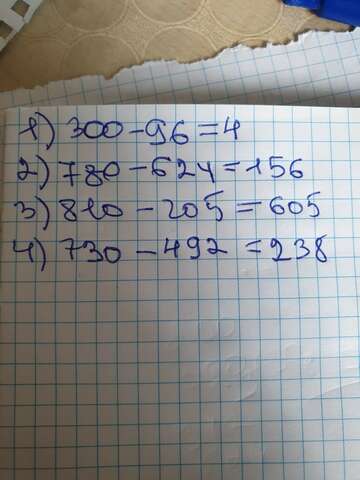 1) 300-96=4
2) 780-624=156
3) 810-205=605
4) 730-492=238